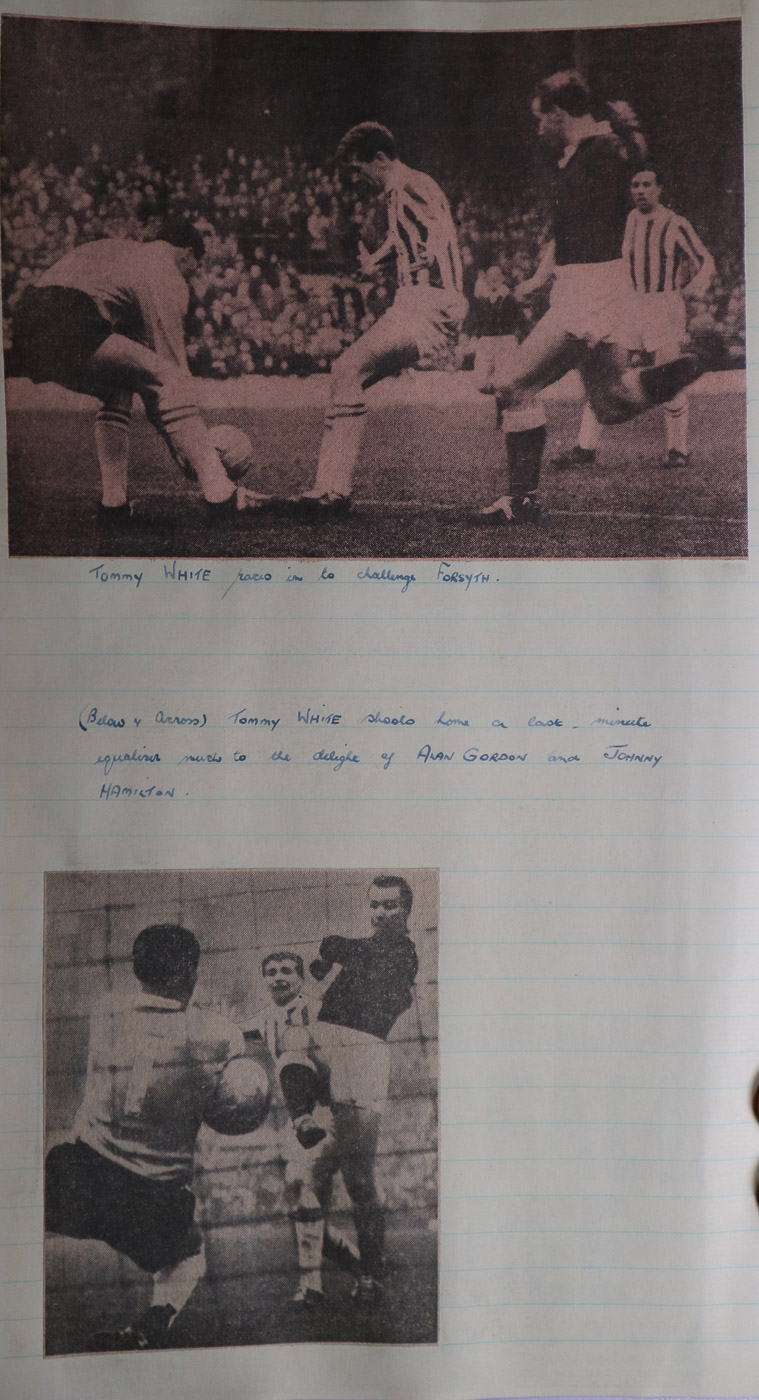 Tommy WHITE races in to challenge FORSYTH.
(Below & Across) Tommy WHITE shoots home a last-minute
equaliser much to the delight of ALAN GORDON and JOHNNY
HAMILTON.